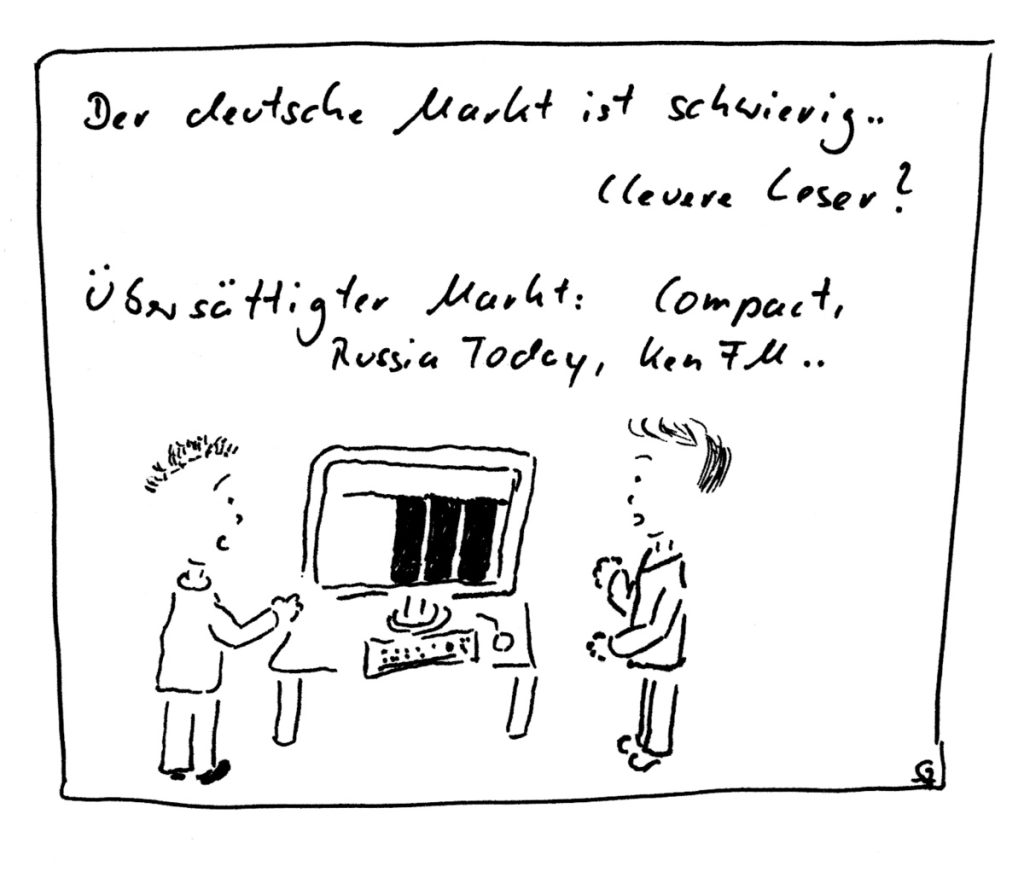 Der deutsche Markt ist schwierig..
Clevere Leser?
Übersättigter Markt: Compact,
Russia Today, Ken FM..